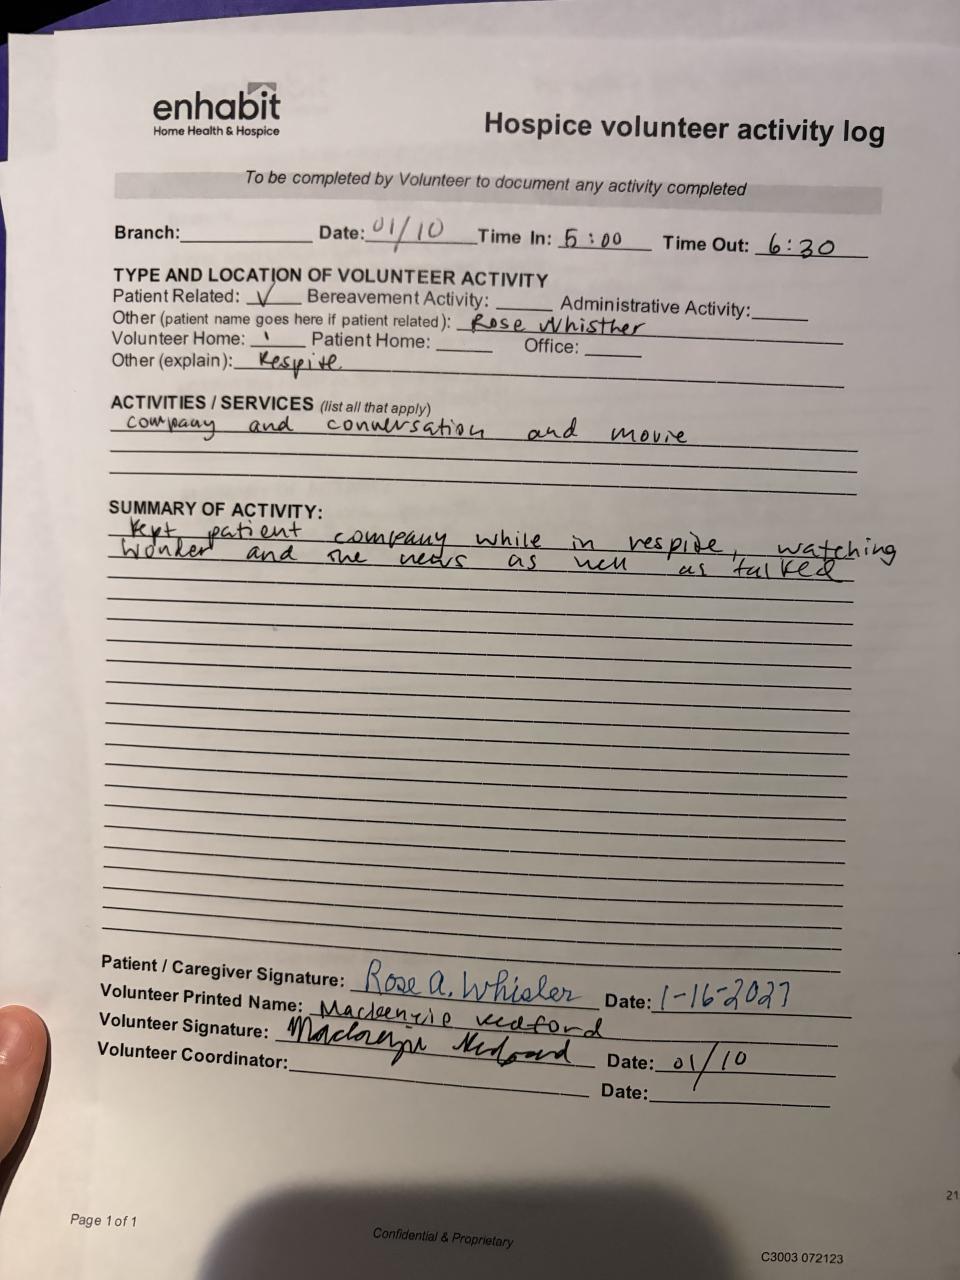 enhabit
Home Health & Hospice
Hospice volunteer activity log
To be completed by Volunteer to document any activity completed
Branch: Date: 01/10 Time In: 5:00 Time Out: 6:30
TYPE AND LOCATION OF VOLUNTEER ACTIVITY
Patient Related: ✓ Bereavement Activity: Administrative Activity:
Other (patient name goes here if patient related): Rose Whisther
Volunteer Home: Patient Home: Office:
Other (explain): Respite
ACTIVITIES / SERVICES (list all that apply)
company and conversation and movie
SUMMARY OF ACTIVITY:
Kept patient company while in respite, watching
Wonker and the news as well as talked
Patient / Caregiver Signature: Rose A. Whisler Date: 1-16-2027
Volunteer Printed Name: Mackenzie
Volunteer Signature: Date: 01/10
Volunteer Coordinator:
Date:
Page 1 of 1
Confidential & Proprietary
C3003 072123
21